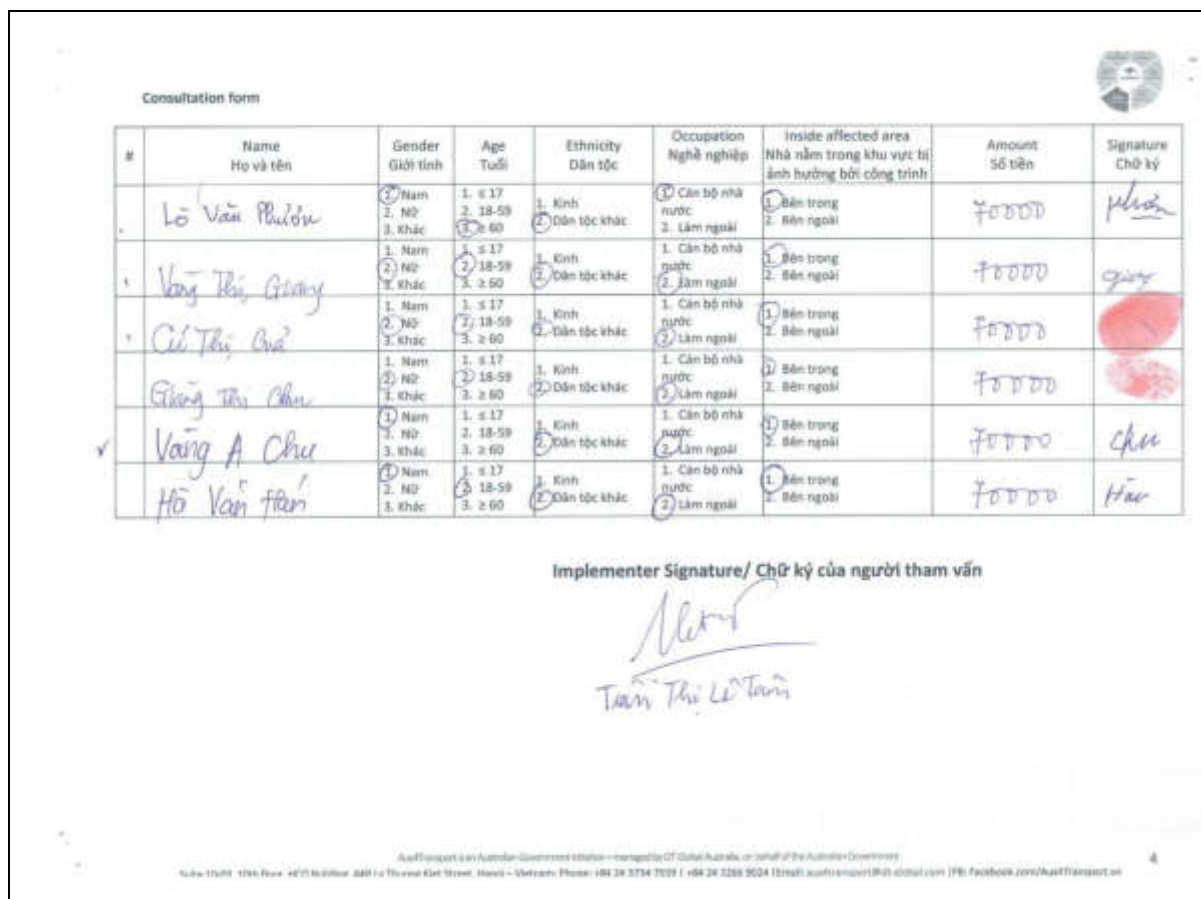 Consultation form
# Name Gender Age Ethnicity Occupation Inside affected area Amount Signature
Họ và tên Giới tính Tuổi Dân tộc Nghề nghiệp Nhà nằm trong khu vực bị ảnh hưởng bởi công trình Số tiền Chữ ký
Lò Văn Phướn 1. Nam 2. Nữ 3. Khác 1. ≤ 17 2. 18-59 3. ≥ 60 1. Kinh 2. Dân tộc khác 1. Cán bộ nhà nước 2. Làm ngoài 1. Bên trong 2. Bên ngoài 70000
Vàng Thị Giang 1. Nam 2. Nữ 3. Khác 1. ≤ 17 2. 18-59 3. ≥ 60 1. Kinh 2. Dân tộc khác 1. Cán bộ nhà nước 2. Làm ngoài 1. Bên trong 2. Bên ngoài 70000 giang
Thị 1. Nam 2. Nữ 3. Khác 1. ≤ 17 2. 18-59 3. ≥ 60 1. Kinh 2. Dân tộc khác 1. Cán bộ nhà nước 2. Làm ngoài 1. Bên trong 2. Bên ngoài 70000
Giàng Thị Chu 1. Nam 2. Nữ 3. Khác 1. ≤ 17 2. 18-59 3. ≥ 60 1. Kinh 2. Dân tộc khác 1. Cán bộ nhà nước 2. Làm ngoài 1. Bên trong 2. Bên ngoài 70000
Vàng A Chu 1. Nam 2. Nữ 3. Khác 1. ≤ 17 2. 18-59 3. ≥ 60 1. Kinh 2. Dân tộc khác 1. Cán bộ nhà nước 2. Làm ngoài 1. Bên trong 2. Bên ngoài 70000 chu
Văn Hán 1. Nam 2. Nữ 3. Khác 1. ≤ 17 2. 18-59 3. ≥ 60 1. Kinh 2. Dân tộc khác 1. Cán bộ nhà nước 2. Làm ngoài 1. Bên trong 2. Bên ngoài 70000 Hán
Implementer Signature/ Chữ ký của người tham vấn
Trần Thị Lê Tâm
Aus4Transport is an Australian Government initiative – managed by DT Global Australia, on behalf of the Australian Government
4